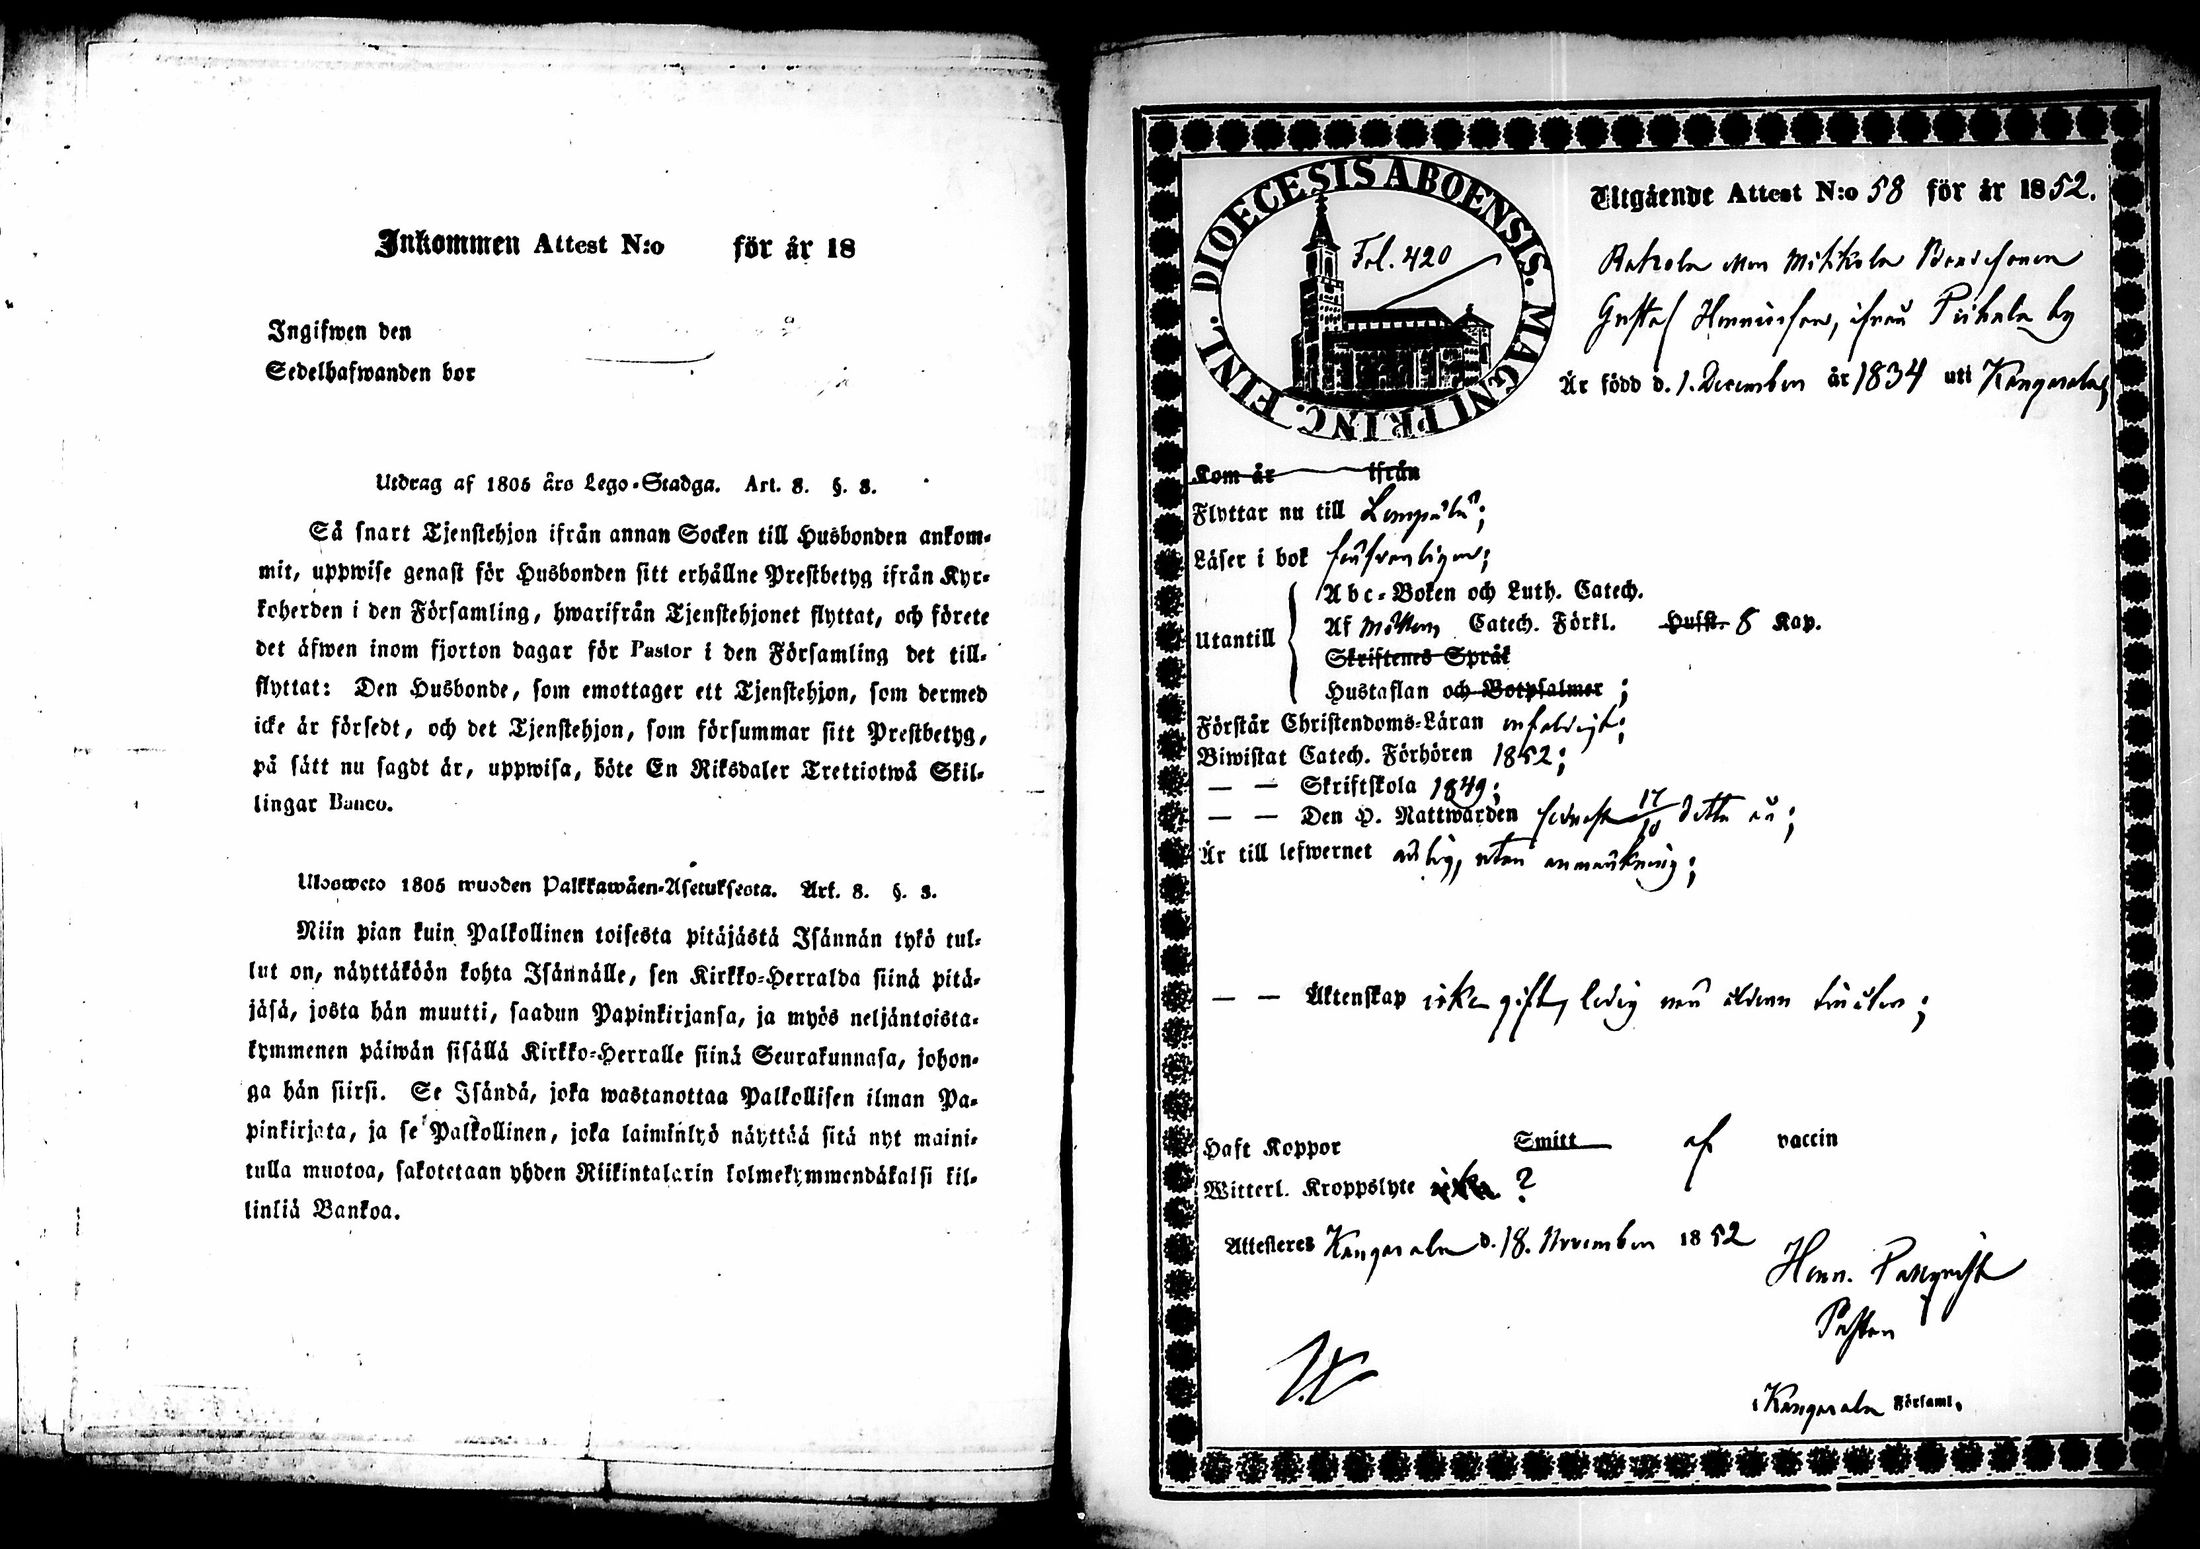 Inkommen Attest N:o för år 18
Ingifwen den
Sedelhafwanden bor
Utdrag af 1805 års Lego-Stadga. Art. 8. §. 3.
Så snart Tjenstehjon ifrån annan Socken till Husbonden ankom-
mit, uppwise genast för Husbonden sitt erhållne Prestbetyg ifrån Kyr-
koherden i den Församling, hwarifrån Tjenstehjonet flyttat, och förete
det äfwen inom fjorton dagar för Pastor i den Församling det till-
flyttat: Den Husbonde, som emottager ett Tjenstehjon, som dermed
icke är försedt, och det Tjenstehjon, som försummar sitt Prestbetyg,
på sätt nu sagdt är, uppwisa, böte En Riksdaler Trettiotwå Skil-
lingar Banco.
Ulosweto 1805 wuoden Palkkawäen-Asetuksesta. Art. 8. §. 3.
Niin pian kuin Palkollinen toisesta pitäjästä Isännän tykö tul-
lut on, näyttäköön kohta Isännälle, sen Kirkko-Herralda siinä pitä-
jäsä, josta hän muutti, saadun Papinkirjansa, ja myös neljäntoista-
kymmenen päiwän sisällä Kirkko-Herralle siinä Seurakunnasa, johon-
ga hän siirsi. Se Isändä, joka wastanottaa Palkollisen ilman Pa-
pinkirjata, ja se Palkollinen, joka laiminlyö näyttää sitä nyt maini-
tulla muotoa, sakotetaan yhden Riikintalarin kolmekymmendäkaksi kil-
linkiä Bankoa.
DIOECESIS ABOENSIS. MAGNI PRINC. FINL.
Fol. 420
Utgående Attest N:o 58 för år 1852.
Mikkola
Gustaf Henricsson, ifrån by
Är född d. 1. December år 1834 uti Kangasala,
Kom år ifrån
Flyttar nu till Lempälä;
Läser i bok försvarligen;
Utantill
Abc-Boken och Luth. Catech.
Af Möllers Catech. Förkl. Hufst. 8 Kap.
Skriftenes Språk
Hustaflan och Botpsalmer;
Förstår Christendoms-Läran enfaldigt;
Biwistat Catech. Förhören 1852;
— — Skriftskola 1849;
— — Den H. Nattwarden sednast 17/10 detta år;
Är till lefwernet ärlig, utan anmärkning;
— — Äktenskap icke gift, ledig
Haft Koppor Smitt af vaccin
Witterl. Kroppslyte icke ?
Attesteres Kangasala d. 18. November 1852
Henr.
Pastor
i Kangasala Församl.